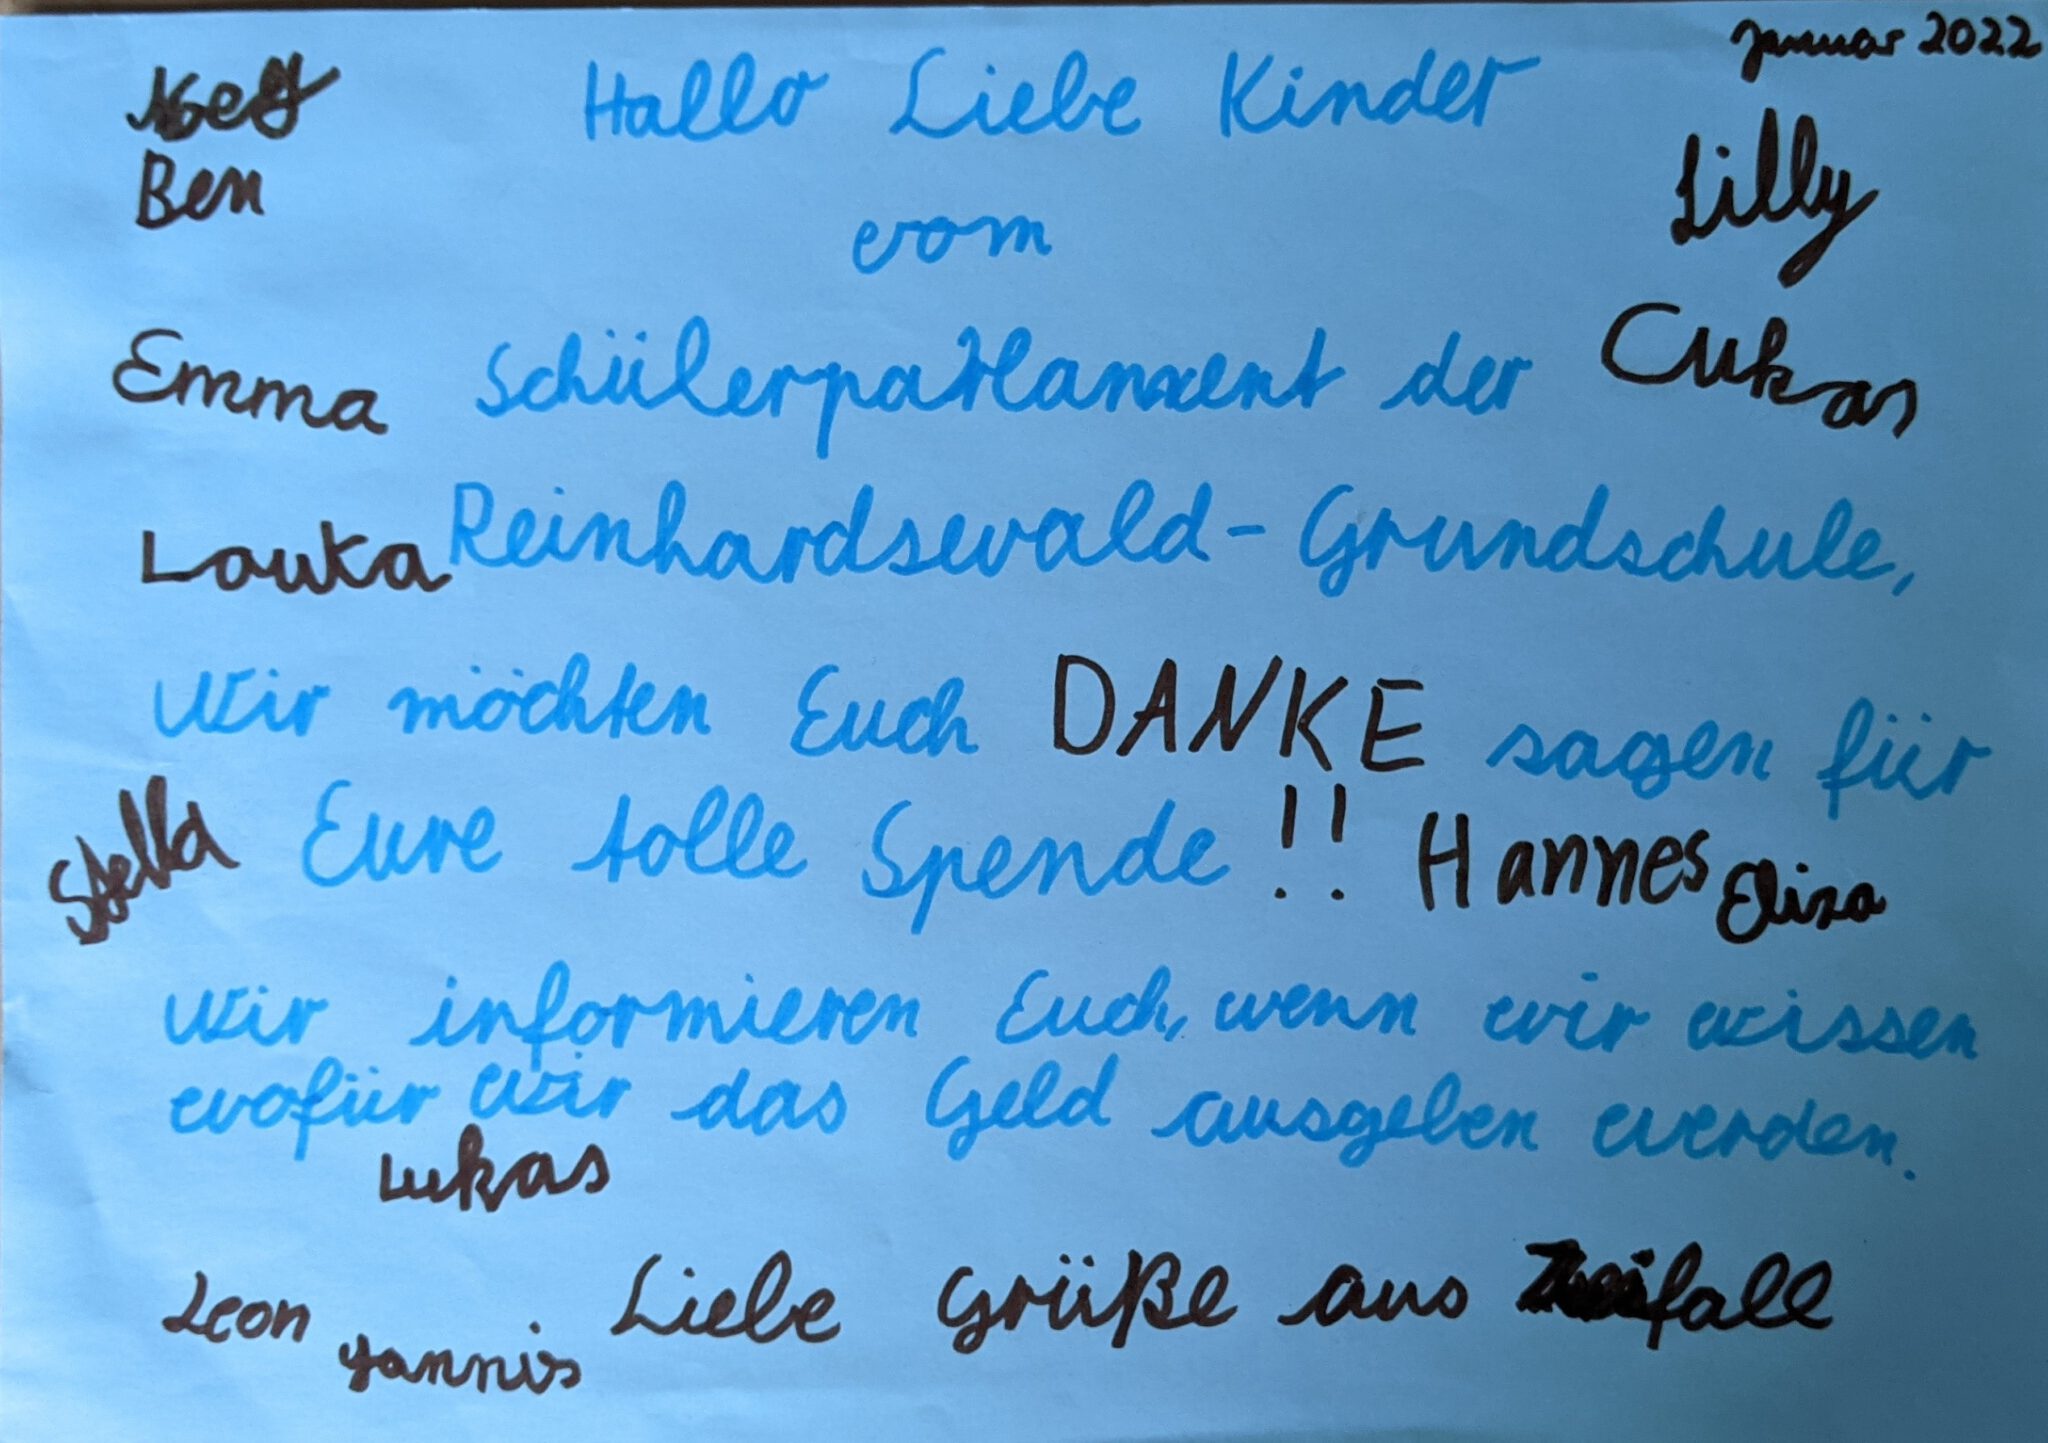 Januar 2022
Hallo Liebe Kinder
Ben
Lilly
vom
Emma
Schülerparlament der
Lukas
Louka
Reinhardswald-Grundschule,
Wir möchten Euch DANKE sagen für
Stella
Eure tolle Spende !!
Hannes
Eliza
Wir informieren Euch, wenn wir wissen
wofür wir das Geld ausgeben werden.
Lukas
Leon
Liebe Grüße aus
Yannis